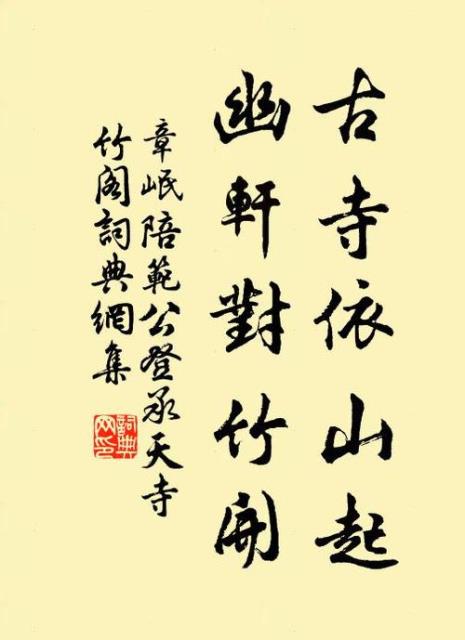 古寺依山起
幽軒對竹開
章岷陪範公登承天寺
竹閣詞典網集
詞典网印